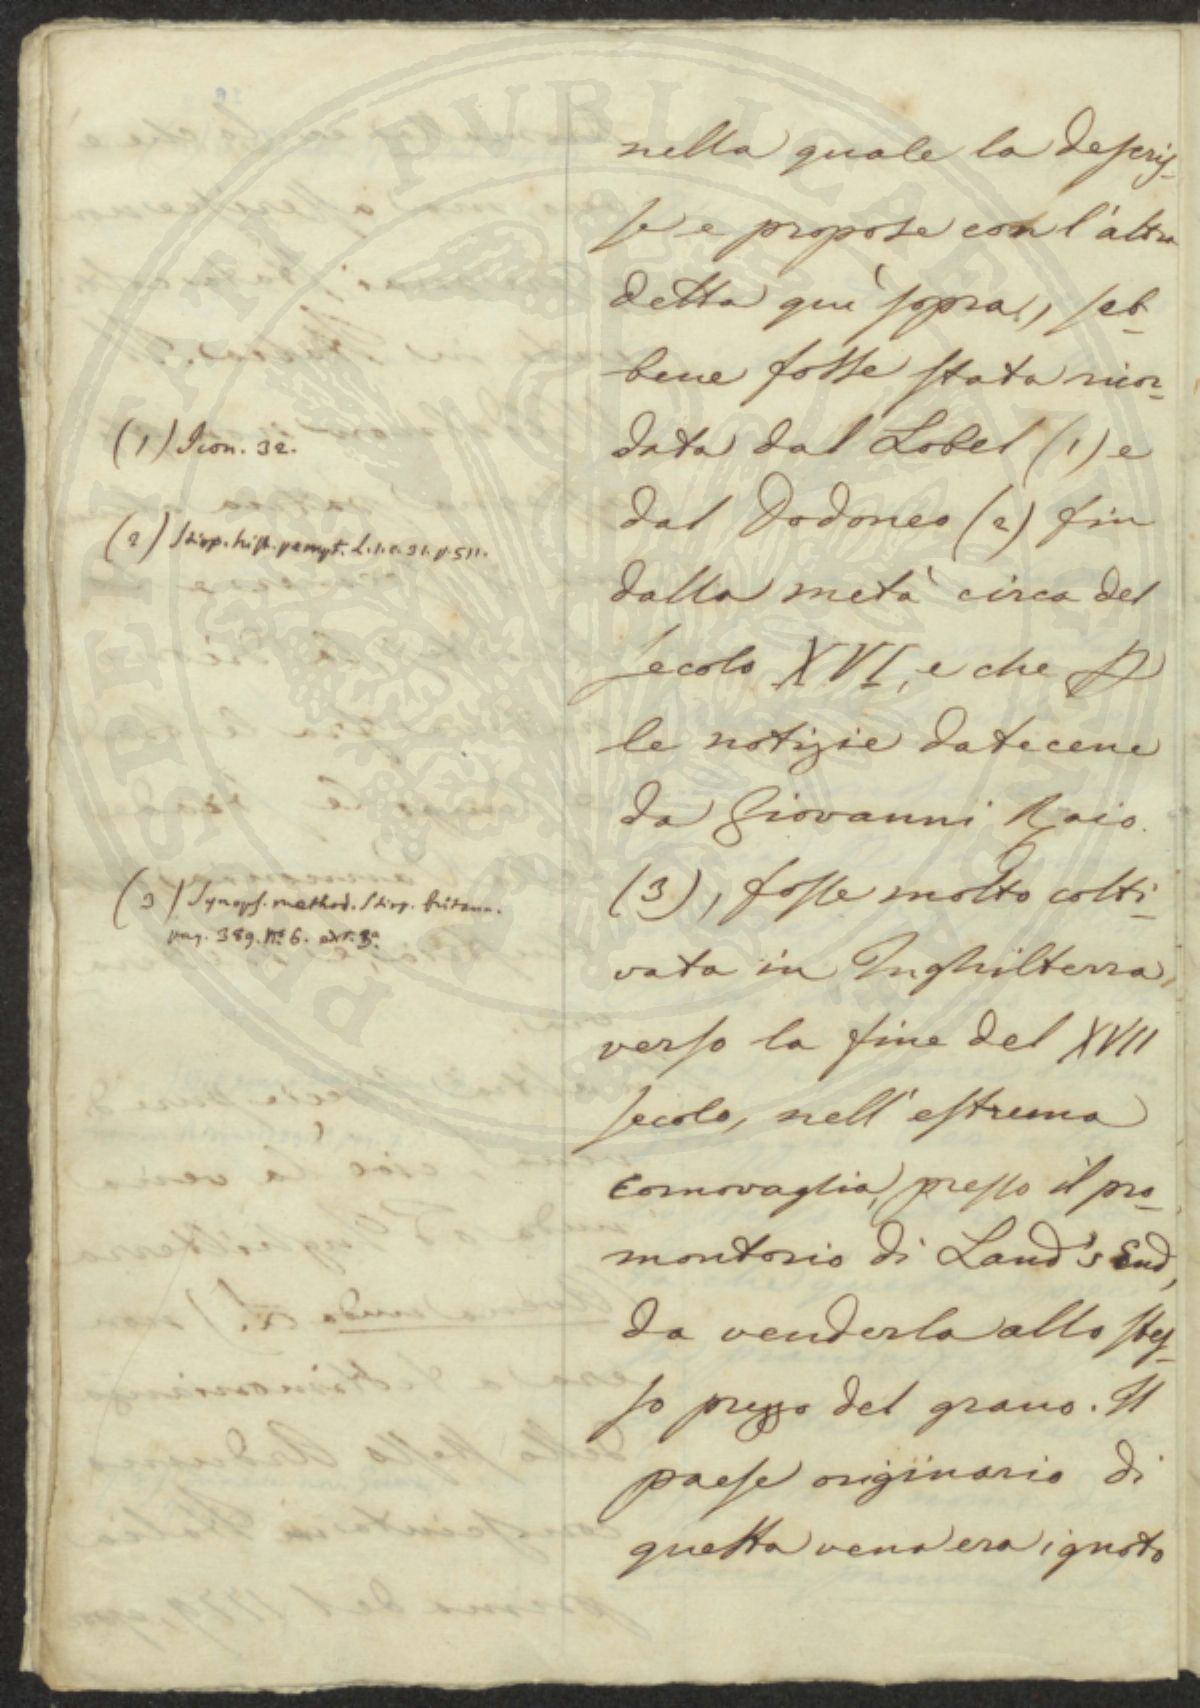 nella quale la descris-
se e propose con l'altra
detta quì sopra, seb-
bene fosse stata ricor-
data dal Lobel (1) e
dal Dodoneo (2) fin
dalla metà circa del
secolo XVI, e che p
le notizie datecene
da Giovanni Raio
(3), fosse molto colti-
vata in Inghilterra,
verso la fine del XVII
secolo, nell'estrema
Cornovaglia, presso il pro-
montorio di Land's End,
da venderla allo stes-
so prezzo del grano. Il
paese originario di
questa vena era ignoto
(1) Icon. 32.
(2) Stirp. hist. pempt. L. 1. c. 31. p. 511.
(3) Synops. method. stirp. britann.
pag. 389. N.º 6. ed.
PUBLICAE